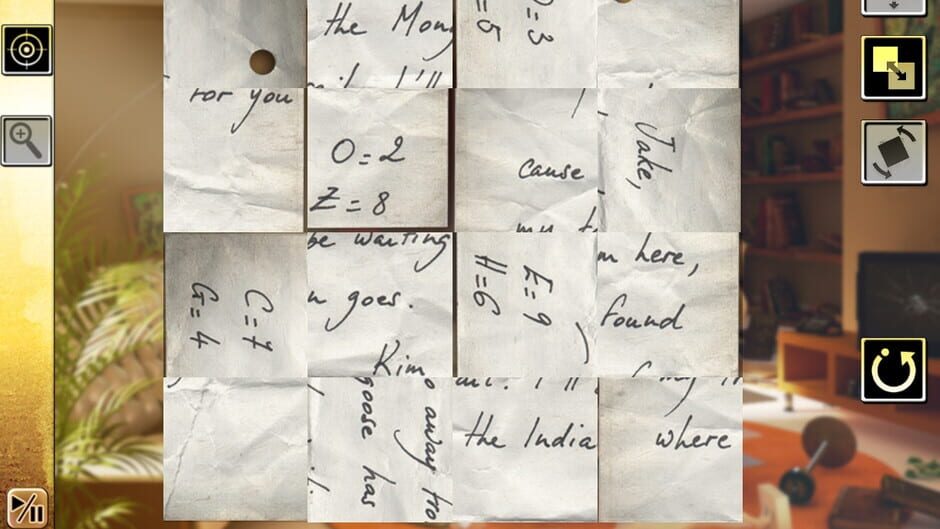 the
= 3
= 5
for you
O = 2
Z = 8
cause
my
Jake,
C = 7
G = 4
be waiting
goes.
Kim
E = 9
H = 6
here,
found
away fro
goose has
I'll
the India
where